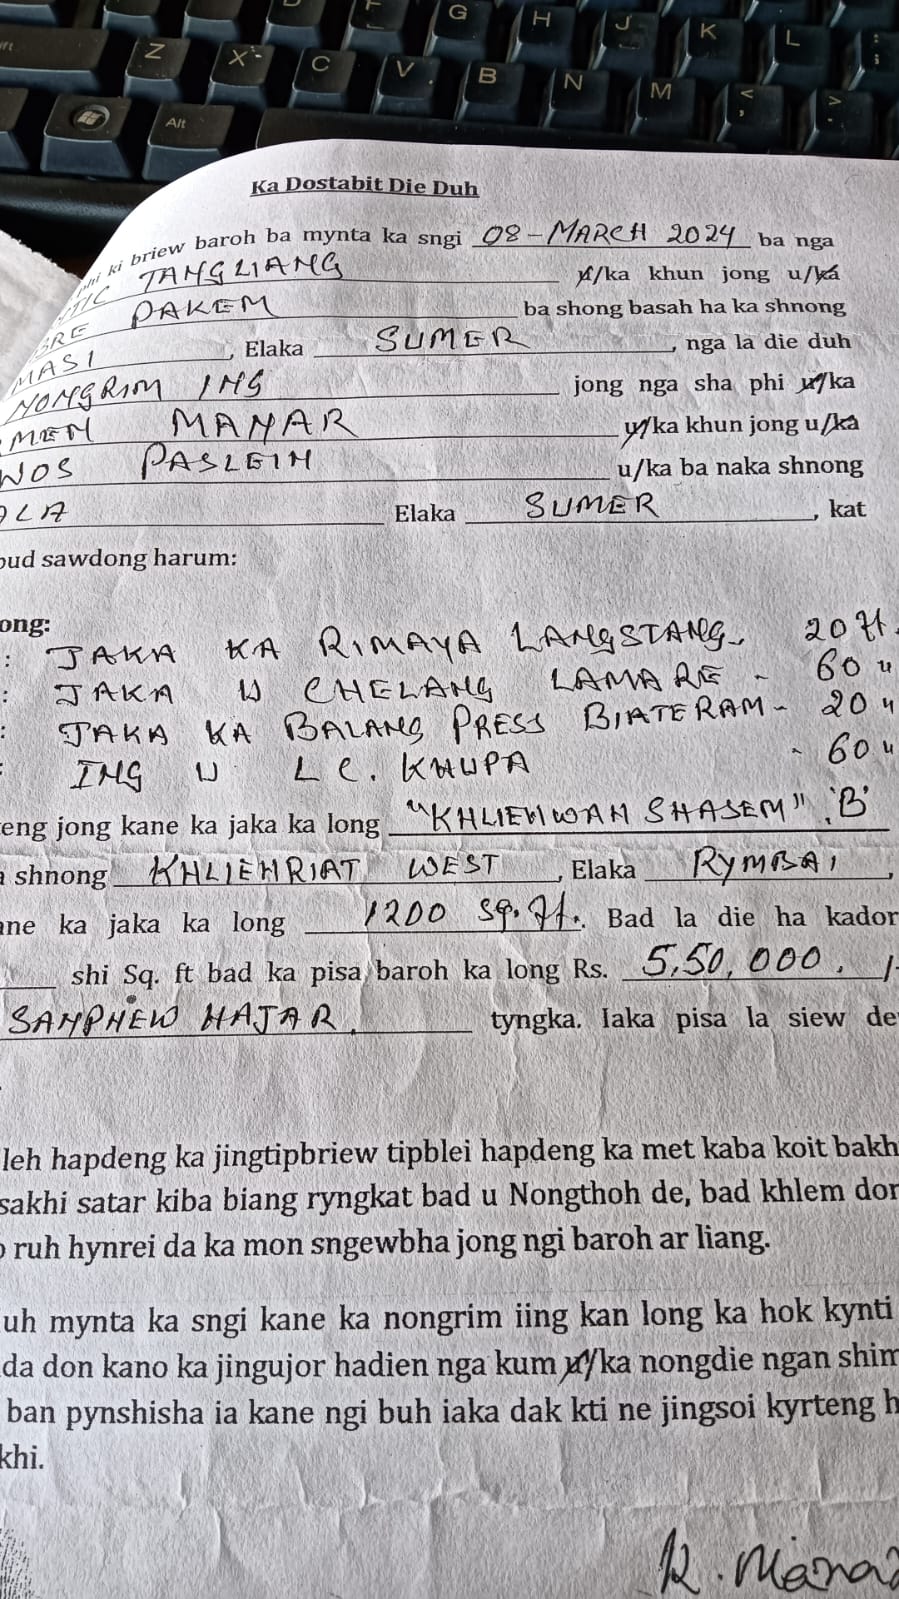 G H J K L
Z X C V B N M < >
Alt
Ka Dostabit Die Duh
ki briew baroh ba mynta ka sngi 08-MARCH 2024 ba nga
TANGLIANG u/ka khun jong u/ka
PAKEM ba shong basah ha ka shnong
MASI, Elaka SUMER, nga la die duh
NONGRIM ING jong nga sha phi u/ka
MEN MANAR u/ka khun jong u/ka
WOS PASLEIN u/ka ba naka shnong
Elaka SUMER, kat
pud sawdong harum:
ong:
: JAKA KA RIMAYA LANGSTANG - 20 ft.
: JAKA U CHELANG LAMARE - 60 "
: JAKA KA BALANG PRESS BIATERAM - 20 "
: ING U L C. KHUPA - 60 "
teng jong kane ka jaka ka long "KHLIEHWAH SHASEM" 'B'
a shnong KHLIEHRIAT WEST, Elaka RYMBAI,
ane ka jaka ka long 1200 sq. ft. Bad la die ha kador
shi Sq. ft bad ka pisa baroh ka long Rs. 5,50,000. /-
SANPHEW HAJAR. tyngka. Iaka pisa la siew de
leh hapdeng ka jingtipbriew tipblei hapdeng ka met kaba koit bakh
sakhi satar kiba biang ryngkat bad u Nongthoh de, bad khlem don
ruh hynrei da ka mon sngewbha jong ngi baroh ar liang.
uh mynta ka sngi kane ka nongrim iing kan long ka hok kynti
da don kano ka jingujor hadien nga kum u/ka nongdie ngan shim
ban pynshisha ia kane ngi buh iaka dak kti ne jingsoi kyrteng h
khi.
K. Manar